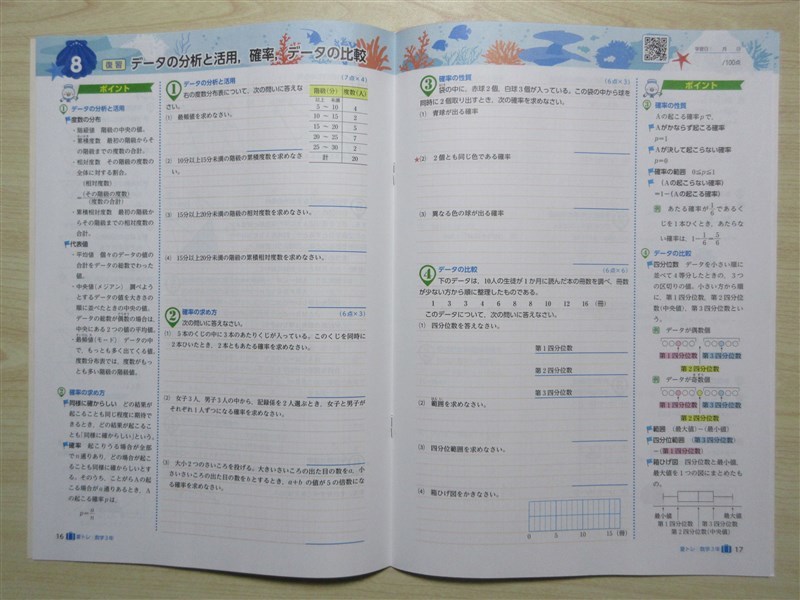 8 復習 データの分析と活用，確率，データの比較
ポイント
① データの分析と活用
度数の分布
・階級値 階級の中央の値。
・累積度数 最初の階級からその階級までの度数の合計。
・相対度数 その階級の度数の全体に対する割合。
(相対度数)
=(その階級の度数)/(度数の合計)
・累積相対度数 最初の階級からその階級までの相対度数の合計。
代表値
・平均値 個々のデータの値の合計をデータの総数でわった値。
・中央値(メジアン) 調べようとするデータの値を大きさの順に並べたときの中央の値。データの総数が偶数の場合は，中央にある2つの値の平均値。
・最頻値(モード) データの中で，もっとも多く出てくる値。度数分布表では，度数がもっとも多い階級の階級値。
② 確率の求め方
同様に確からしい どの結果が起こることも同じ程度に期待できるとき，どの結果が起こることも「同様に確からしい」という。
確率 起こりうる場合が全部でn通りあり，どの場合が起こることも同様に確からしいとする。そのうち，ことがらAの起こる場合がa通りあるとき，Aの起こる確率pは，
p=a/n
16 夏トレ 数学3年
1 データの分析と活用 (7点×4)
右の度数分布表について，次の問いに答えなさい。
階級(分) 度数(人)
以上 未満
5 ～ 10 4
10 ～ 15 2
15 ～ 20 5
20 ～ 25 7
25 ～ 30 2
計 20
(1) 最頻値を求めなさい。
(2) 10分以上15分未満の階級の累積度数を求めなさい。
(3) 15分以上20分未満の階級の相対度数を求めなさい。
(4) 15分以上20分未満の階級の累積相対度数を求めなさい。
2 確率の求め方 (6点×3)
次の問いに答えなさい。
(1) 5本のくじの中に3本のあたりくじが入っている。このくじを同時に2本ひいたとき，2本ともあたる確率を求めなさい。
(2) 女子3人，男子3人の中から，記録係を2人選ぶとき，女子と男子がそれぞれ1人ずつになる確率を求めなさい。
(3) 大小2つのさいころを投げる。大きいさいころの出た目の数をa，小さいさいころの出た目の数をbとするとき，a+bの値が5の倍数になる確率を求めなさい。
学習日： 月 日
/100点
3 確率の性質 (6点×3)
袋の中に，赤球2個，白球3個が入っている。この袋の中から球を同時に2個取り出すとき，次の確率を求めなさい。
(1) 青球が出る確率
★(2) 2個とも同じ色である確率
(3) 異なる色の球が出る確率
4 データの比較 (6点×6)
下のデータは，10人の生徒が1か月に読んだ本の冊数を調べ，冊数が少ない方から順に整理したものである。
1 3 3 4 7 8 10 12 16 (冊)
このデータについて，次の問いに答えなさい。
(1) 四分位数を答えなさい。
第1四分位数
第2四分位数
第3四分位数
(2) 範囲を求めなさい。
(3) 四分位範囲を求めなさい。
(4) 箱ひげ図をかきなさい。
0 5 10 15 (冊)
ポイント
③ 確率の性質
Aの起こる確率pで，
Aがかならず起こる確率
p=1
Aが決して起こらない確率
p=0
確率の範囲 0≦p≦1
(Aの起こらない確率)
=1-(Aの起こる確率)
例 あたる確率が1/6であるくじを1本ひくとき，あたらない確率は，1-1/6=5/6
④ データの比較
四分位数 データを小さい順に並べて4等分したときの，3つの区切りの値。小さい方から順に，第1四分位数，第2四分位数(中央値)，第3四分位数という。
例 データが偶数個
第1四分位数 第3四分位数
第2四分位数
例 データが奇数個
第1四分位数 第3四分位数
第2四分位数
範囲 (最大値)-(最小値)
四分位範囲 (第3四分位数)
-(第1四分位数)
箱ひげ図 四分位数と最小値，最大値を1つの図にまとめたもの。
最小値 最大値
第1四分位数 第3四分位数
第2四分位数(中央値)
夏トレ 数学3年 17